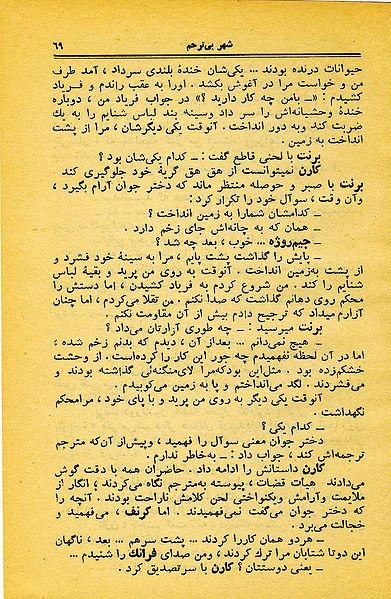 شهر بی‌ترحم ۶۹
حیوانات درنده بودند ... یکی‌شان خندهٔ بلندی سرداد ، آمد طرف
من و خواست مرا در آغوش بکشد . اورا به عقب راندم و فریاد
کشیدم : «ـ بامن چه کار دارید ؟» در جواب فریاد من ، دوباره
خندهٔ وحشیانه‌اش را سر داد وسینه بند لباس شنایم را به یك
ضربت کند وبه دور انداخت . آنوقت یکی دیگرشان ، مرا از پشت
انداخت به زمین .
برنت با لحنی قاطع گفت : ـ کدام یکی‌شان بود ؟
کارن نمیتوانست از هق هق گریهٔ خود جلوگیری کند
برنت با صبر و حوصله منتظر ماند که دختر جوان آرام بگیرد ،
وآن وقت ، سوآل خود را تکرار کرد :
ـ کدامشان شمارا به زمین انداخت ؟
ـ همان که به چانه‌اش جای زخم دارد .
ـ جیم‌روژه ... خوب ، بعد چه شد ؟
ـ پایش را گذاشت پشت پایم ، مرا به سینهٔ خود فشرد و
از پشت به‌زمین انداخت . آنوقت به روی من پرید و بقیهٔ لباس
شنایم را کند . من شروع کردم به فریاد کشیدن ، اما دستش را
محکم روی دهانم گذاشت که صدا نکنم . من تقلا می‌کردم ، اما چنان
آزارم میداد که ترجیح دادم بیش از آن مقاومت نکنم .
برنت میرسید : ـ چه طوری آزارتان می‌داد ؟
ـ هیچ نمی‌دانم ... بعداز آن ، دیدم که بدنم زخم شده ،
اما در آن لحظه نفهمیدم چه جور این کار را کرده‌است . از وحشت
خشکم‌زده بود . مثل‌این بودکه‌مرا لای‌منگنه‌ئی گذاشته بودند و
می‌فشردند . لگد می‌انداختم و پا به زمین می‌کوبیدم .
آنوقت یکی دیگر به روی من پرید و با پای خود ، مرامحکم
نگهداشت .
ـ کدام یکی ؟
دختر جوان معنی سوآل را فهمید ، وپیش‌از آن‌که مترجم
ترجمه‌اش کند ، جواب داد : ـ به‌خاطر ندارم .
کارن داستانش را ادامه داد . حاضران همه با دقت گوش
می‌دادند هیات قضات ، پیوسته به‌مترجم نگاه می‌کردند ؛ انگار از
ملایمت وآرامش ویکنواختی لحن کلامش ناراحت بودند . آنچه را
که دختر جوان می‌گفت نمی‌فهمیدند . اما کرنف ، می‌فهمید و
خجالت می‌برد .
ـ هردو همان کاررا کردند ... پشت سرهم ... بعد ، ناگهان
این دوتا شتابان مرا ترك کردند ، ومن صدای فرانك را شنیدم ...
ـ یعنی دوستتان ؟ کارن با سرتصدیق کرد .